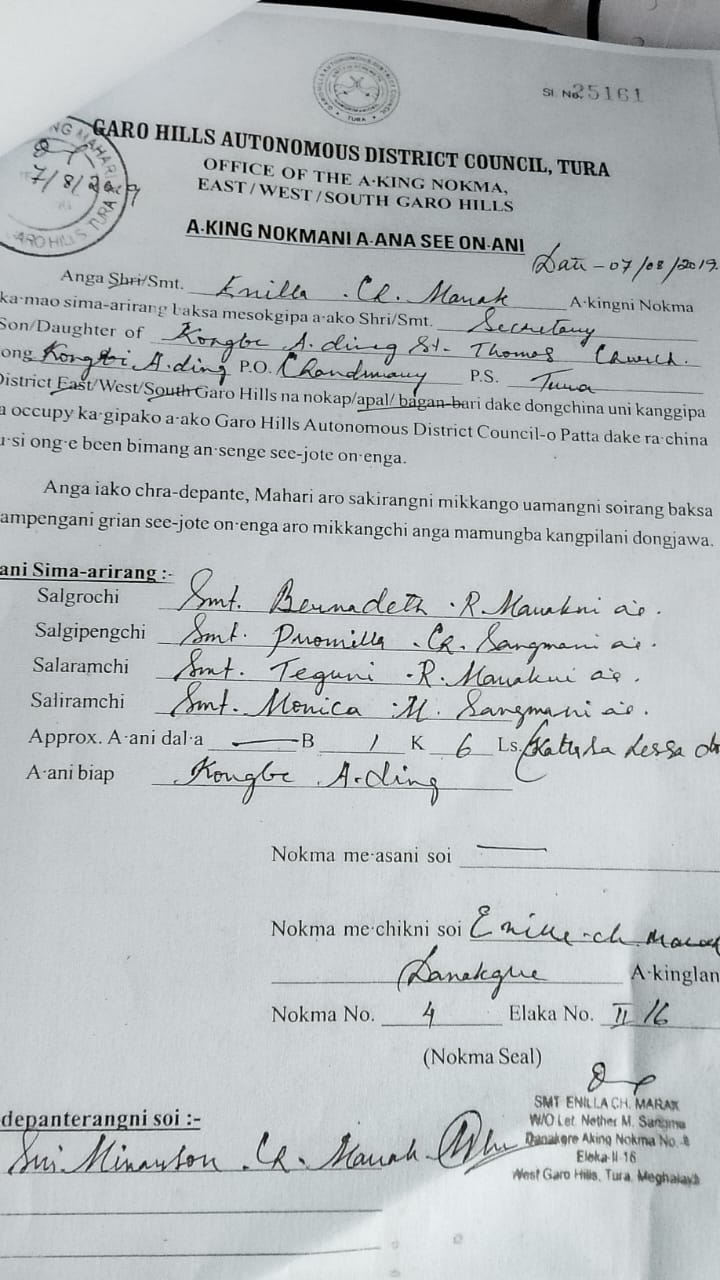 Sl. No. 25161
GARO HILLS AUTONOMOUS DISTRICT COUNCIL, TURA
OFFICE OF THE A·KING NOKMA,
EAST/WEST/SOUTH GARO HILLS
7/8/2019
A·KING NOKMANI A·ANA SEE ON·ANI
Date - 07/08/2019
Anga Shri/Smt. Enilla . Ch. Marak A·kingni Nokma
ka·mao sima-arirang baksa mesokgipa a·ako Shri/Smt. Secretary
Son/Daughter of Kongbe A·ding St. Thomas Church.
ong A·ding P.O. P.S. Tura
District East/West/South Garo Hills na nokap/apal/ bagan-bari dake dongchina uni kanggipa
a occupy ka·gipako a·ako Garo Hills Autonomous District Council-o Patta dake ra·china
u·si ong·e been bimang an·senge see-jote on·enga.
Anga iako chra-depante, Mahari aro sakirangni mikkango uamangni soirang baksa
ampengani grian see-jote on·enga aro mikkangchi anga mamungba kangpilani dongjawa.
ani Sima-arirang :-
Salgrochi Smt. Bernadeth . R. Marakni a·a.
Salgipengchi Smt. Promilla . Ch. Sangmani a·a.
Salaramchi Smt. Teguni . R. Marakni a·a.
Saliramchi Smt. Monica . M. Sangmani a·a.
Approx. A·ani dal·a — B 1 K 6 Ls.
A·ani biap Kongbe A·ding
Nokma me·asani soi —
Nokma me·chikni soi Enilla ch. Marak
Danakgre A·kinglan
Nokma No. 4 Elaka No. II 16
(Nokma Seal)
SMT ENILLA CH. MARAK
W/O Let. Nether M. Sangma
Danakgre Aking Nokma No.
Eleka-II-16
West Garo Hills, Tura, Meghalaya
depanterangni soi :-
Ch. Marak